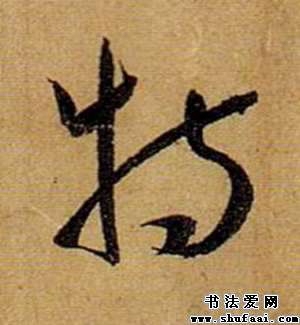 特
书法爱网
www.shufaai.com